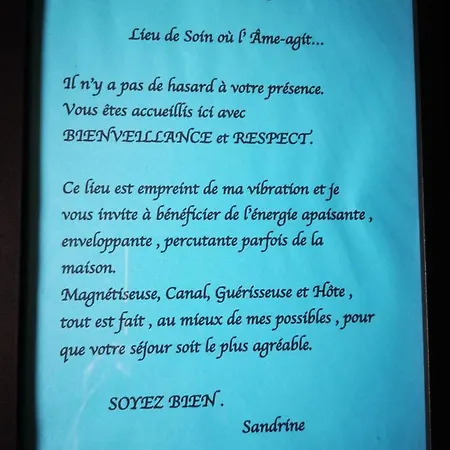 Lieu de Soin où l' Âme-agit...
Il n'y a pas de hasard à votre présence.
Vous êtes accueillis ici avec
BIENVEILLANCE et RESPECT.
Ce lieu est empreint de ma vibration et je
vous invite à bénéficier de l'énergie apaisante ,
enveloppante , percutante parfois de la
maison.
Magnétiseuse, Canal, Guérisseuse et Hôte ,
tout est fait , au mieux de mes possibles , pour
que votre séjour soit le plus agréable.
SOYEZ BIEN .
Sandrine